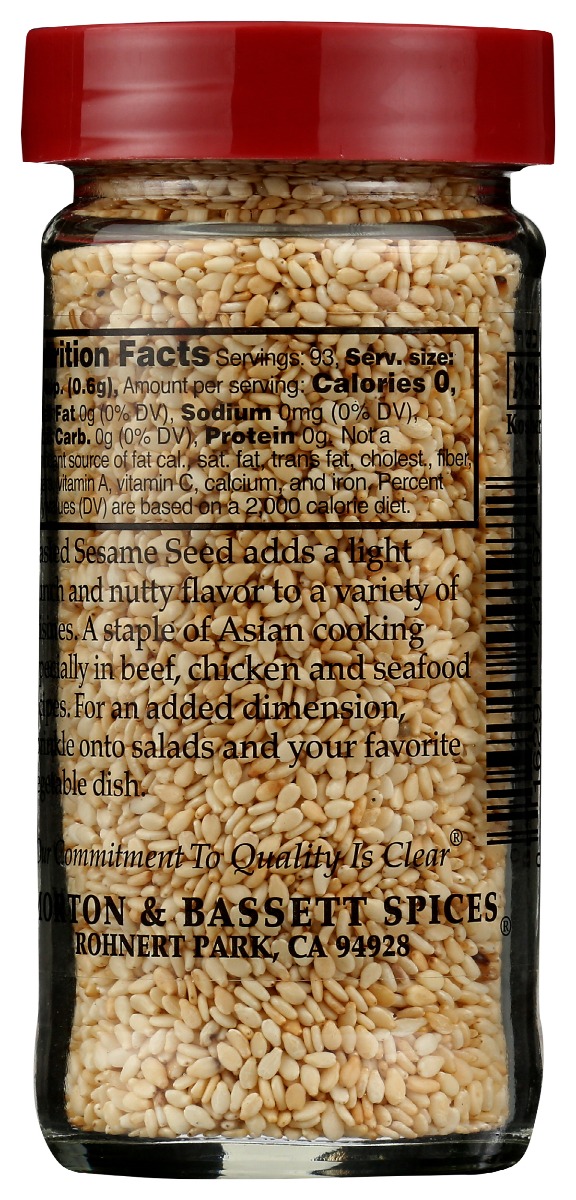 rition Facts Servings: 93, Serv. size:
p. (0.6g), Amount per serving: Calories 0,
Fat 0g (0% DV), Sodium 0mg (0% DV),
Carb. 0g (0% DV), Protein 0g. Not a
ant source of fat cal., sat. fat, trans fat, cholest., fiber,
vitamin A, vitamin C, calcium, and iron. Percent
ues (DV) are based on a 2,000 calorie diet.
ed Sesame Seed adds a light
and nutty flavor to a variety of
es. A staple of Asian cooking
ecially in beef, chicken and seafood
ipes. For an added dimension,
inkle onto salads and your favorite
getable dish.
ur Commitment To Quality Is Clear®
ORTON & BASSETT SPICES®
ROHNERT PARK, CA 94928